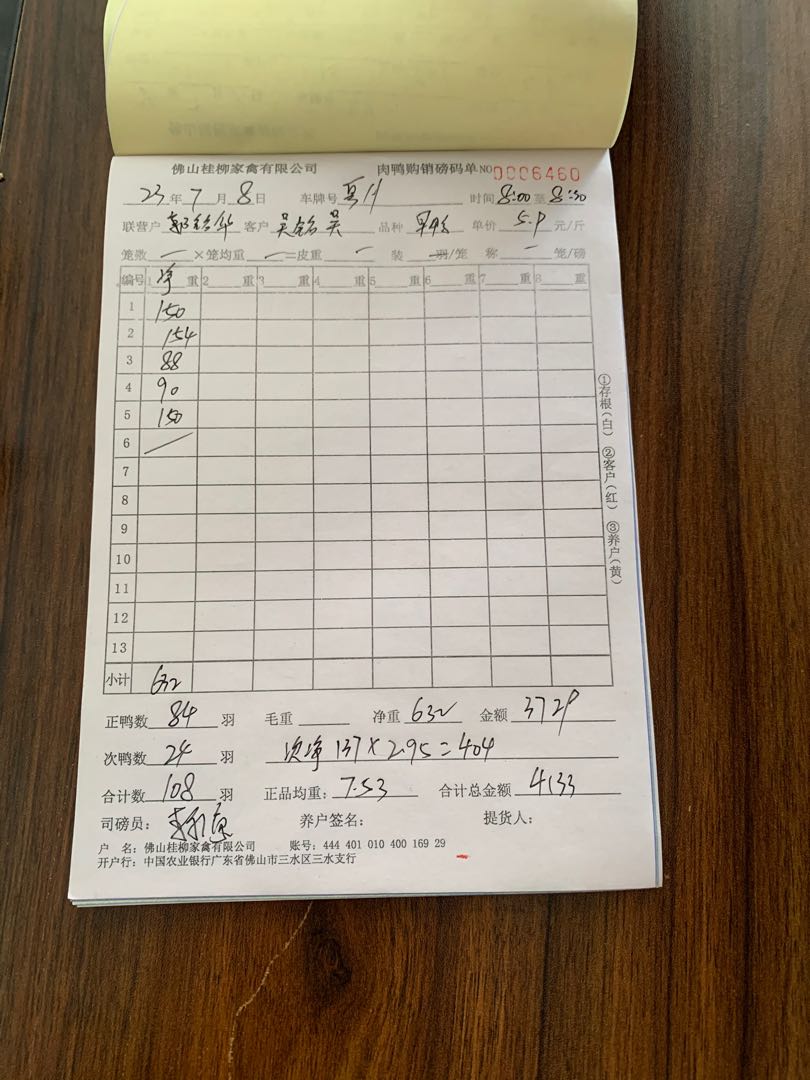 佛山桂柳家禽有限公司 肉鸭购销磅码单 NO 0006460
23年7月8日 车牌号 时间 8:00至8:30
联营户 客户 吴铭吴 品种 单价 5.9 元/斤
笼数 一 ×笼均重 一 =皮重 一 装 一 羽/笼 称 一 笼/磅
编号 1 净 重 2 重 3 重 4 重 5 重 6 重 7 重 8 重
1 150
2 154
3 88
4 90
5 150
6
7
8
9
10
11
12
13
小计 632
正鸭数 84 羽 毛重 净重 632 金额 3729
次鸭数 24 羽 次净 137×2.95=404
合计数 108 羽 正品均重: 7.53 合计总金额 4133
司磅员: 养户签名: 提货人:
户 名: 佛山桂柳家禽有限公司 账号: 444 401 010 400 169 29
开户行: 中国农业银行广东省佛山市三水区三水支行
①存根(白) ②客户(红) ③养户(黄)